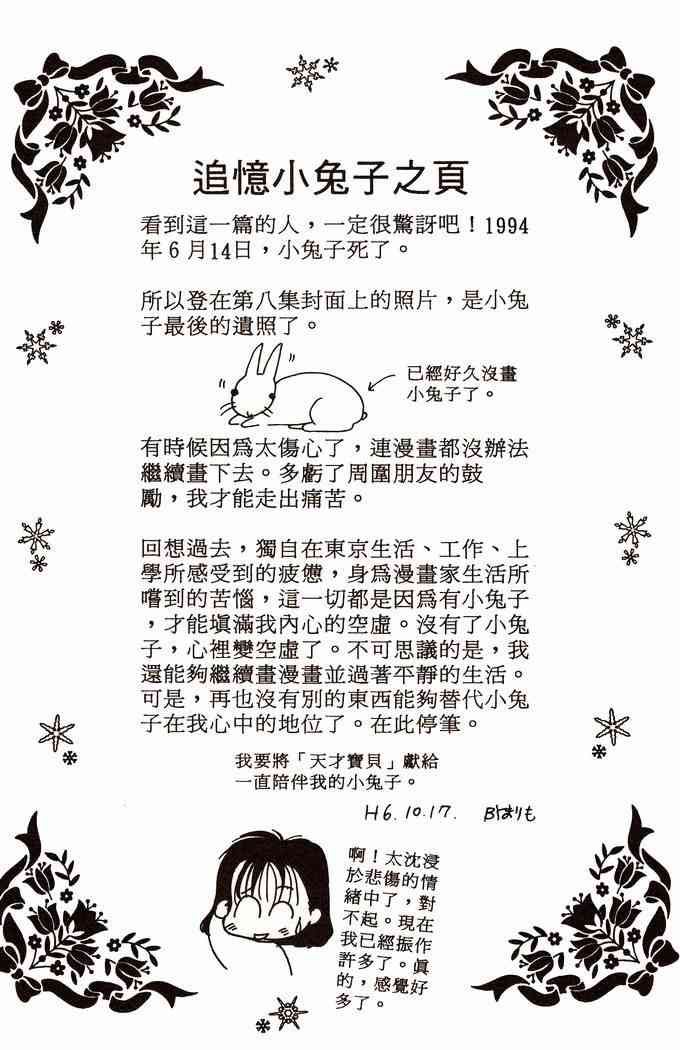 追憶小兔子之頁
看到這一篇的人，一定很驚訝吧！1994
年6月14日，小兔子死了。
所以登在第八集封面上的照片，是小兔
子最後的遺照了。
已經好久沒畫
小兔子了。
有時候因爲太傷心了，連漫畫都沒辦法
繼續畫下去。多虧了周圍朋友的鼓
勵，我才能走出痛苦。
回想過去，獨自在東京生活、工作、上
學所感受到的疲憊，身爲漫畫家生活所
嚐到的苦惱，這一切都是因爲有小兔子
，才能塡滿我內心的空虛。沒有了小兔
子，心裡變空虛了。不可思議的是，我
還能夠繼續畫漫畫並過著平靜的生活。
可是，再也沒有別的東西能夠替代小兔
子在我心中的地位了。在此停筆。
我要將「天才寶貝」獻給
一直陪伴我的小兔子。
H6.10.17.
啊！太沈浸
於悲傷的情
緒中了，對
不起。現在
我已經振作
許多了。眞
的，感覺好
多了。